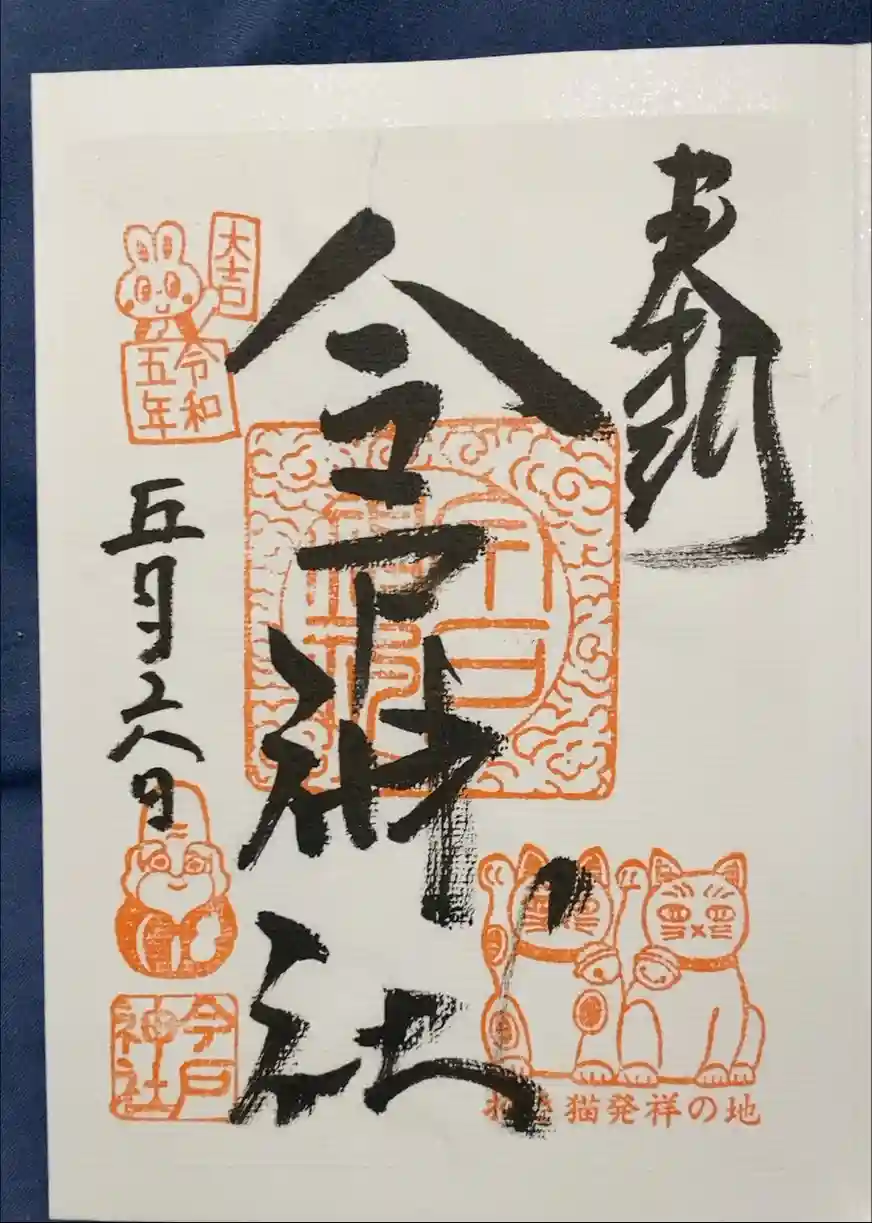 奉拝
今戸神社
大吉
令和
五年
五月二八日
今戸
神社
招き猫発祥の地